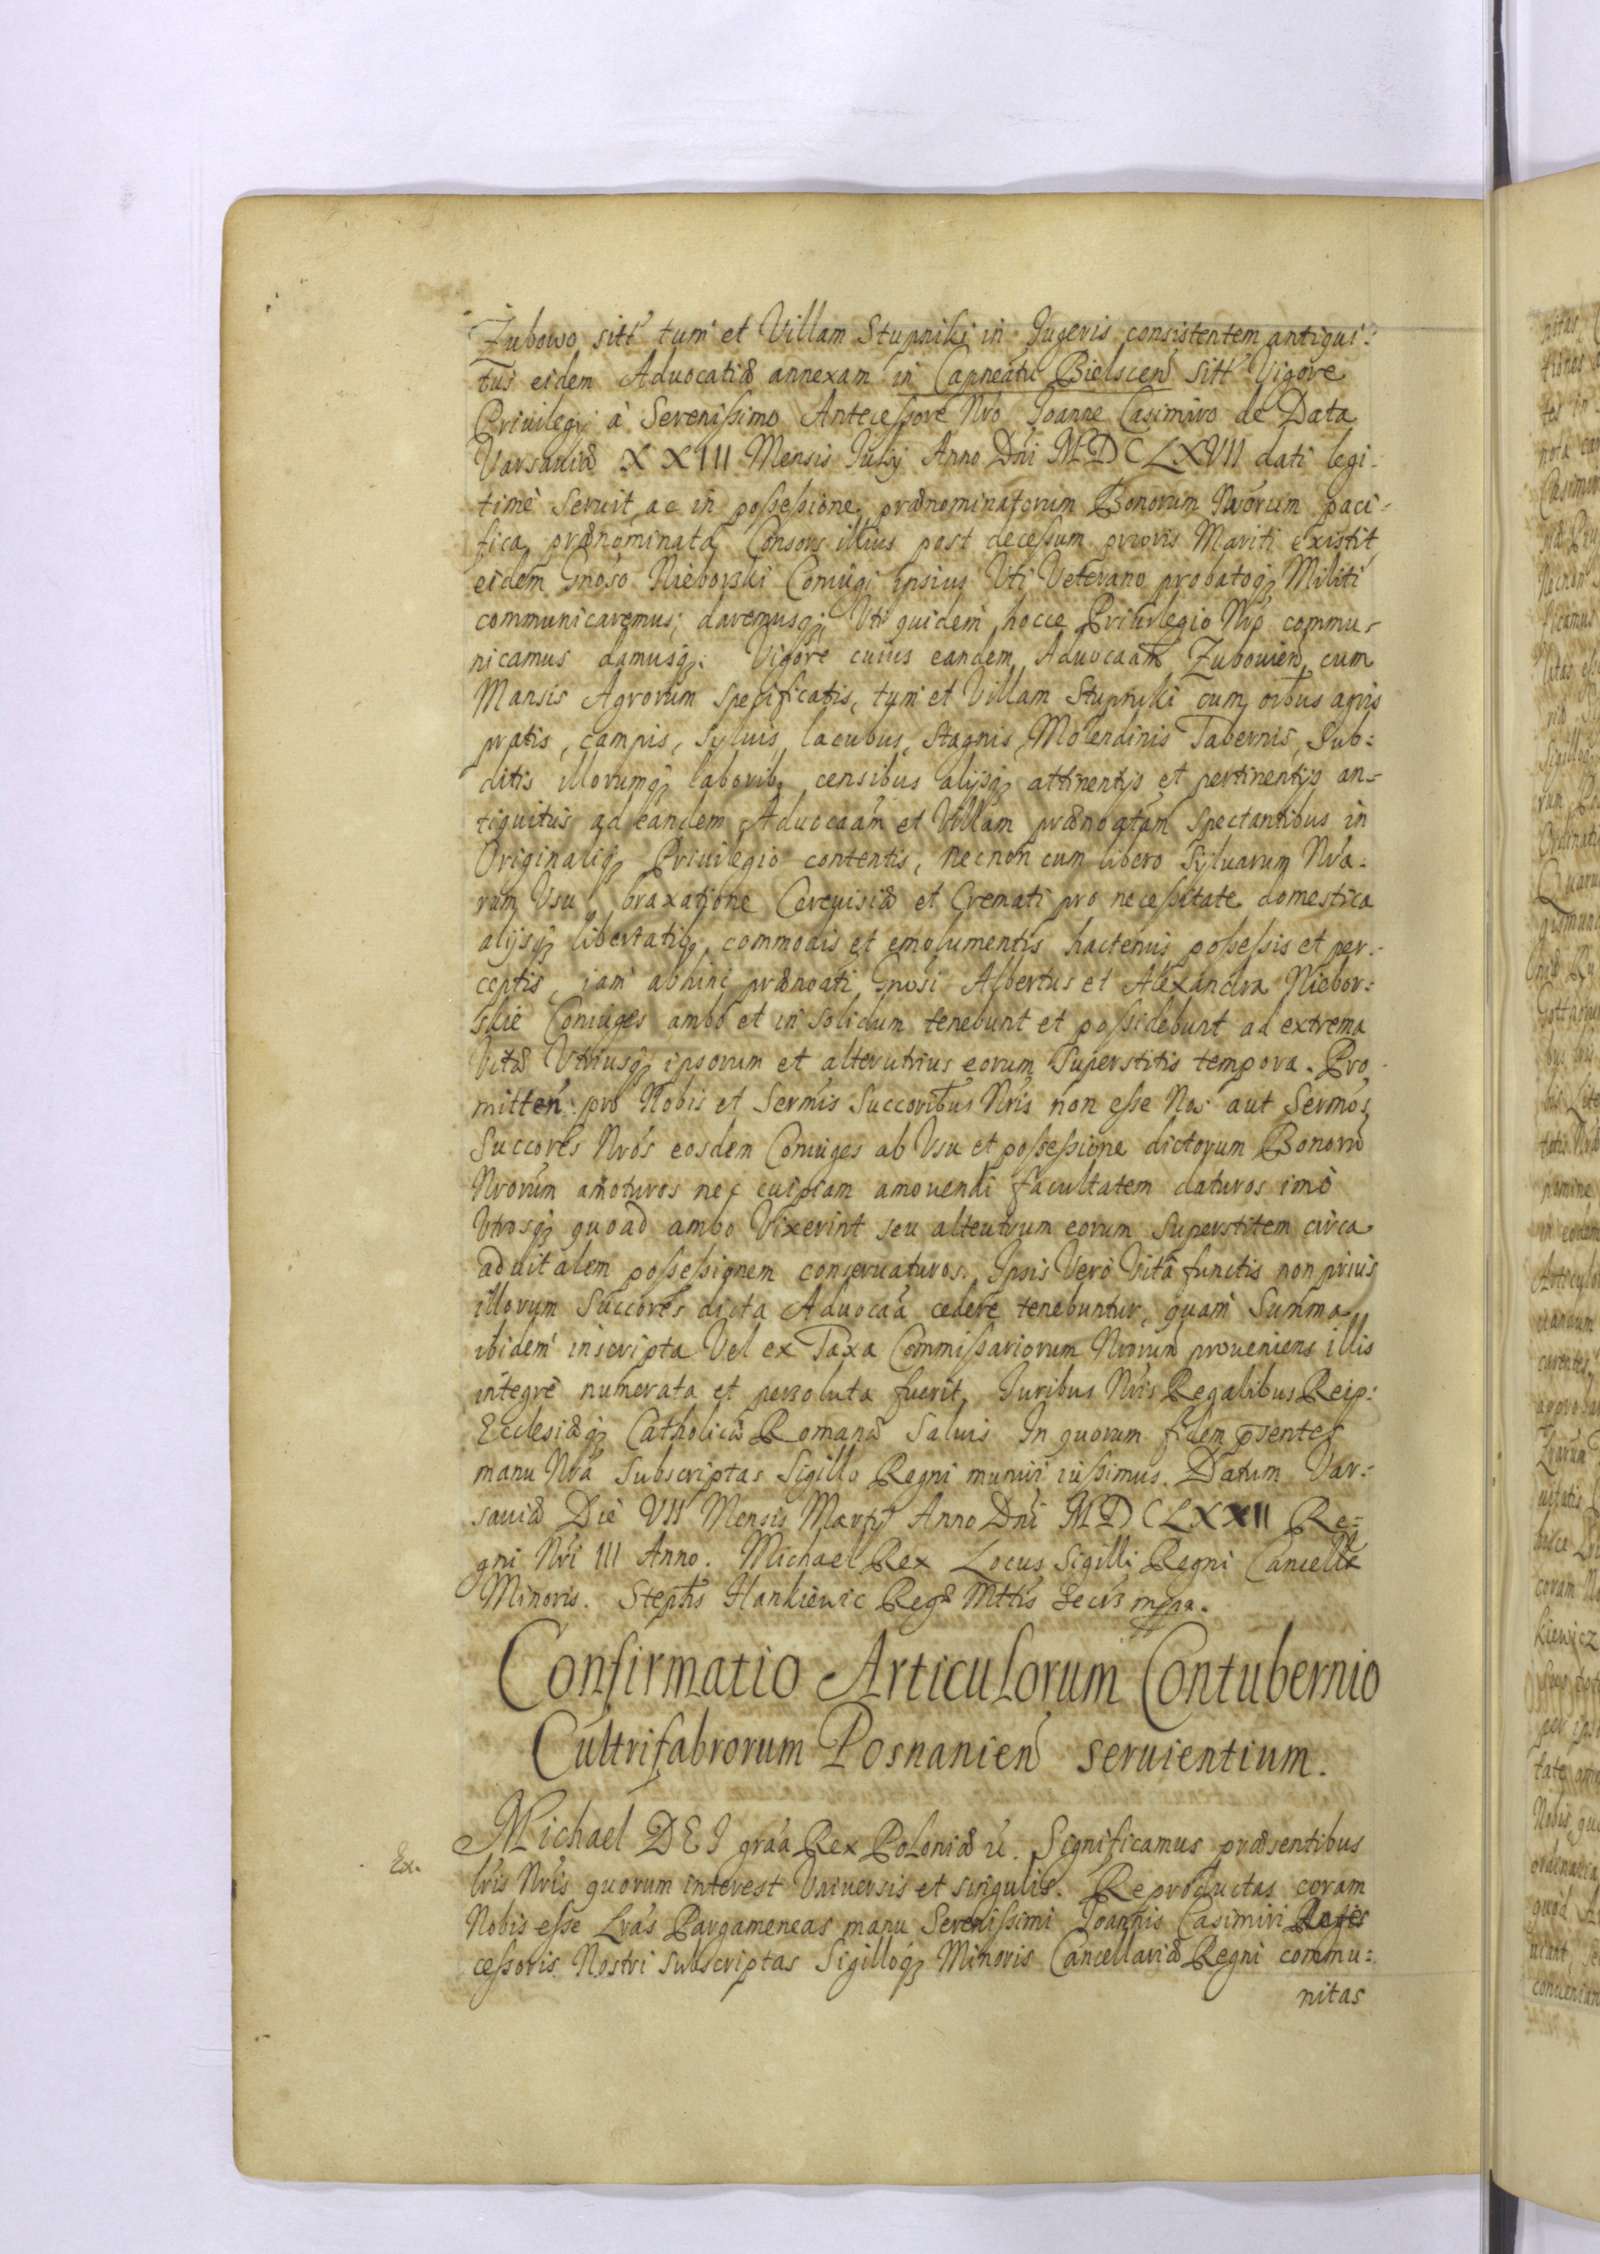 Zubowo sitt tum et Villam Stupniki in Jugeris consistentem antiqui:
tus eidem Advocatiæ annexam in Capneatu Bielscen sitt Vigore
Priuilegij à Serenissimo Antecessore Nrô Joanne Casimiro de Data
Varsauiæ XXIII Mensis Julij Anno Dñi MDCLXVII dati legi-
timè seruit, ac in possessione prænominatorum Bonorum Nrorum paci-
fica prænominata Consors illius post decessum prioris Mariti existit
eidem Gnoso Nieborski Coniugi ipsius Vti Veterano probatoq; Militi
communicaremus, daremusq; Vti quidem hocce Priuilegio Nrô commu-
nicamus damusq; Vigore cuius eandem Aduocaam Zubouien cum
Mansis Agrorum specificatis, tum et Villam Stupniki cum oibus agris
pratis, campis, syluis, lacubus, stagnis, Molendinis Tabernis, Sub:
ditis illorumq; laborib; censibus alijsq; attinentijs et pertinentijs an-
tiquitus ad eandem Aduocaam et Villam prænoatam spectantibus in
Originaliq; Priuilegio contentis, necnon cum libero syluarum Nra-
rum Vsu braxatione Ceruisiæ et Cremati pro necessitate domestica
alijsq; libertatiq; commodis et emolumentis hactenus possessis et per-
ceptis, iam abhinc prænoati Gnosi Albertus et Alexandra Niebor-
skie Coniuges ambo et in solidum tenebunt et possidebunt ad extrema
Vitæ Vtriusq; ipsorum et alterutrius eorum superstitis tempora. Pro
mitten pro Nobis et Sermis Succoribus Nris non esse Nos aut Sermos
Succores Nros eosdem Coniuges ab Vsu et possessione dictorum Bonorũ
Nrorum amoturos nec cuipiam amouendi facultatem daturos imò
Vtrosq; quoad ambo Vixerint seu alteutrum eorum superstitem circa
aduitalem possessionem conseruaturos. Ipsis Verò Vitâ functis non prius
illorum Succores dicta Aduocaa cedere tenebuntur, quam Summa
ibidem inscripta Vel ex Taxa Commissariorum Nrorum proueniens illis
integrè numerata et persoluta fuerit, Juribus Nris Regalibus Reip:
Ecclesiæq; Catholicæ Romanæ saluis In quorum fidem psentes
manu Nrâ subscriptas Sigillo Regni muniri iussimus. Datum Var-
sauiæ Die VII Mensis Martij Anno Dni MDCLXXII Re-
gni Nri III Anno. Michael Rex Locus Sigilli Regni Cancellæ
Minoris. Stephs Hankiewic Regæ Mttis Secrs mppa.
Confirmatio Articulorum Contubernio
Cultrifabrorum Posnanien seruientium.
Michael DEI graa Rex Poloniæ &. Significamus præsentibus
Ex.
lris Nris quorum interest Vniuersis et singulis. Reproductas coram
Nobis esse Lras Pargameneas manu Serenissimi Joannis Casimiri
cessoris Nostri subscriptas Sigilloq; Minoris Cancellariæ Regni commu:
nitas